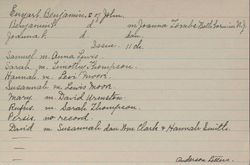 Enyart, Benjamin, s of John.
Benjamin d m Joanna Tombs (Both born in N.J.
Joanna d
Issue. 11 ch.
Samuel m. Anna Lewis.
Sarah m. Timothy Thompson.
Hannah m. Levi Moor.
Susannah m Lewis Moor
Mary m David Urmston
Rufus m Sarah Thompson.
Persis no record
David m Susannah dau Wm Clark & Hannah Smith.
Anderson